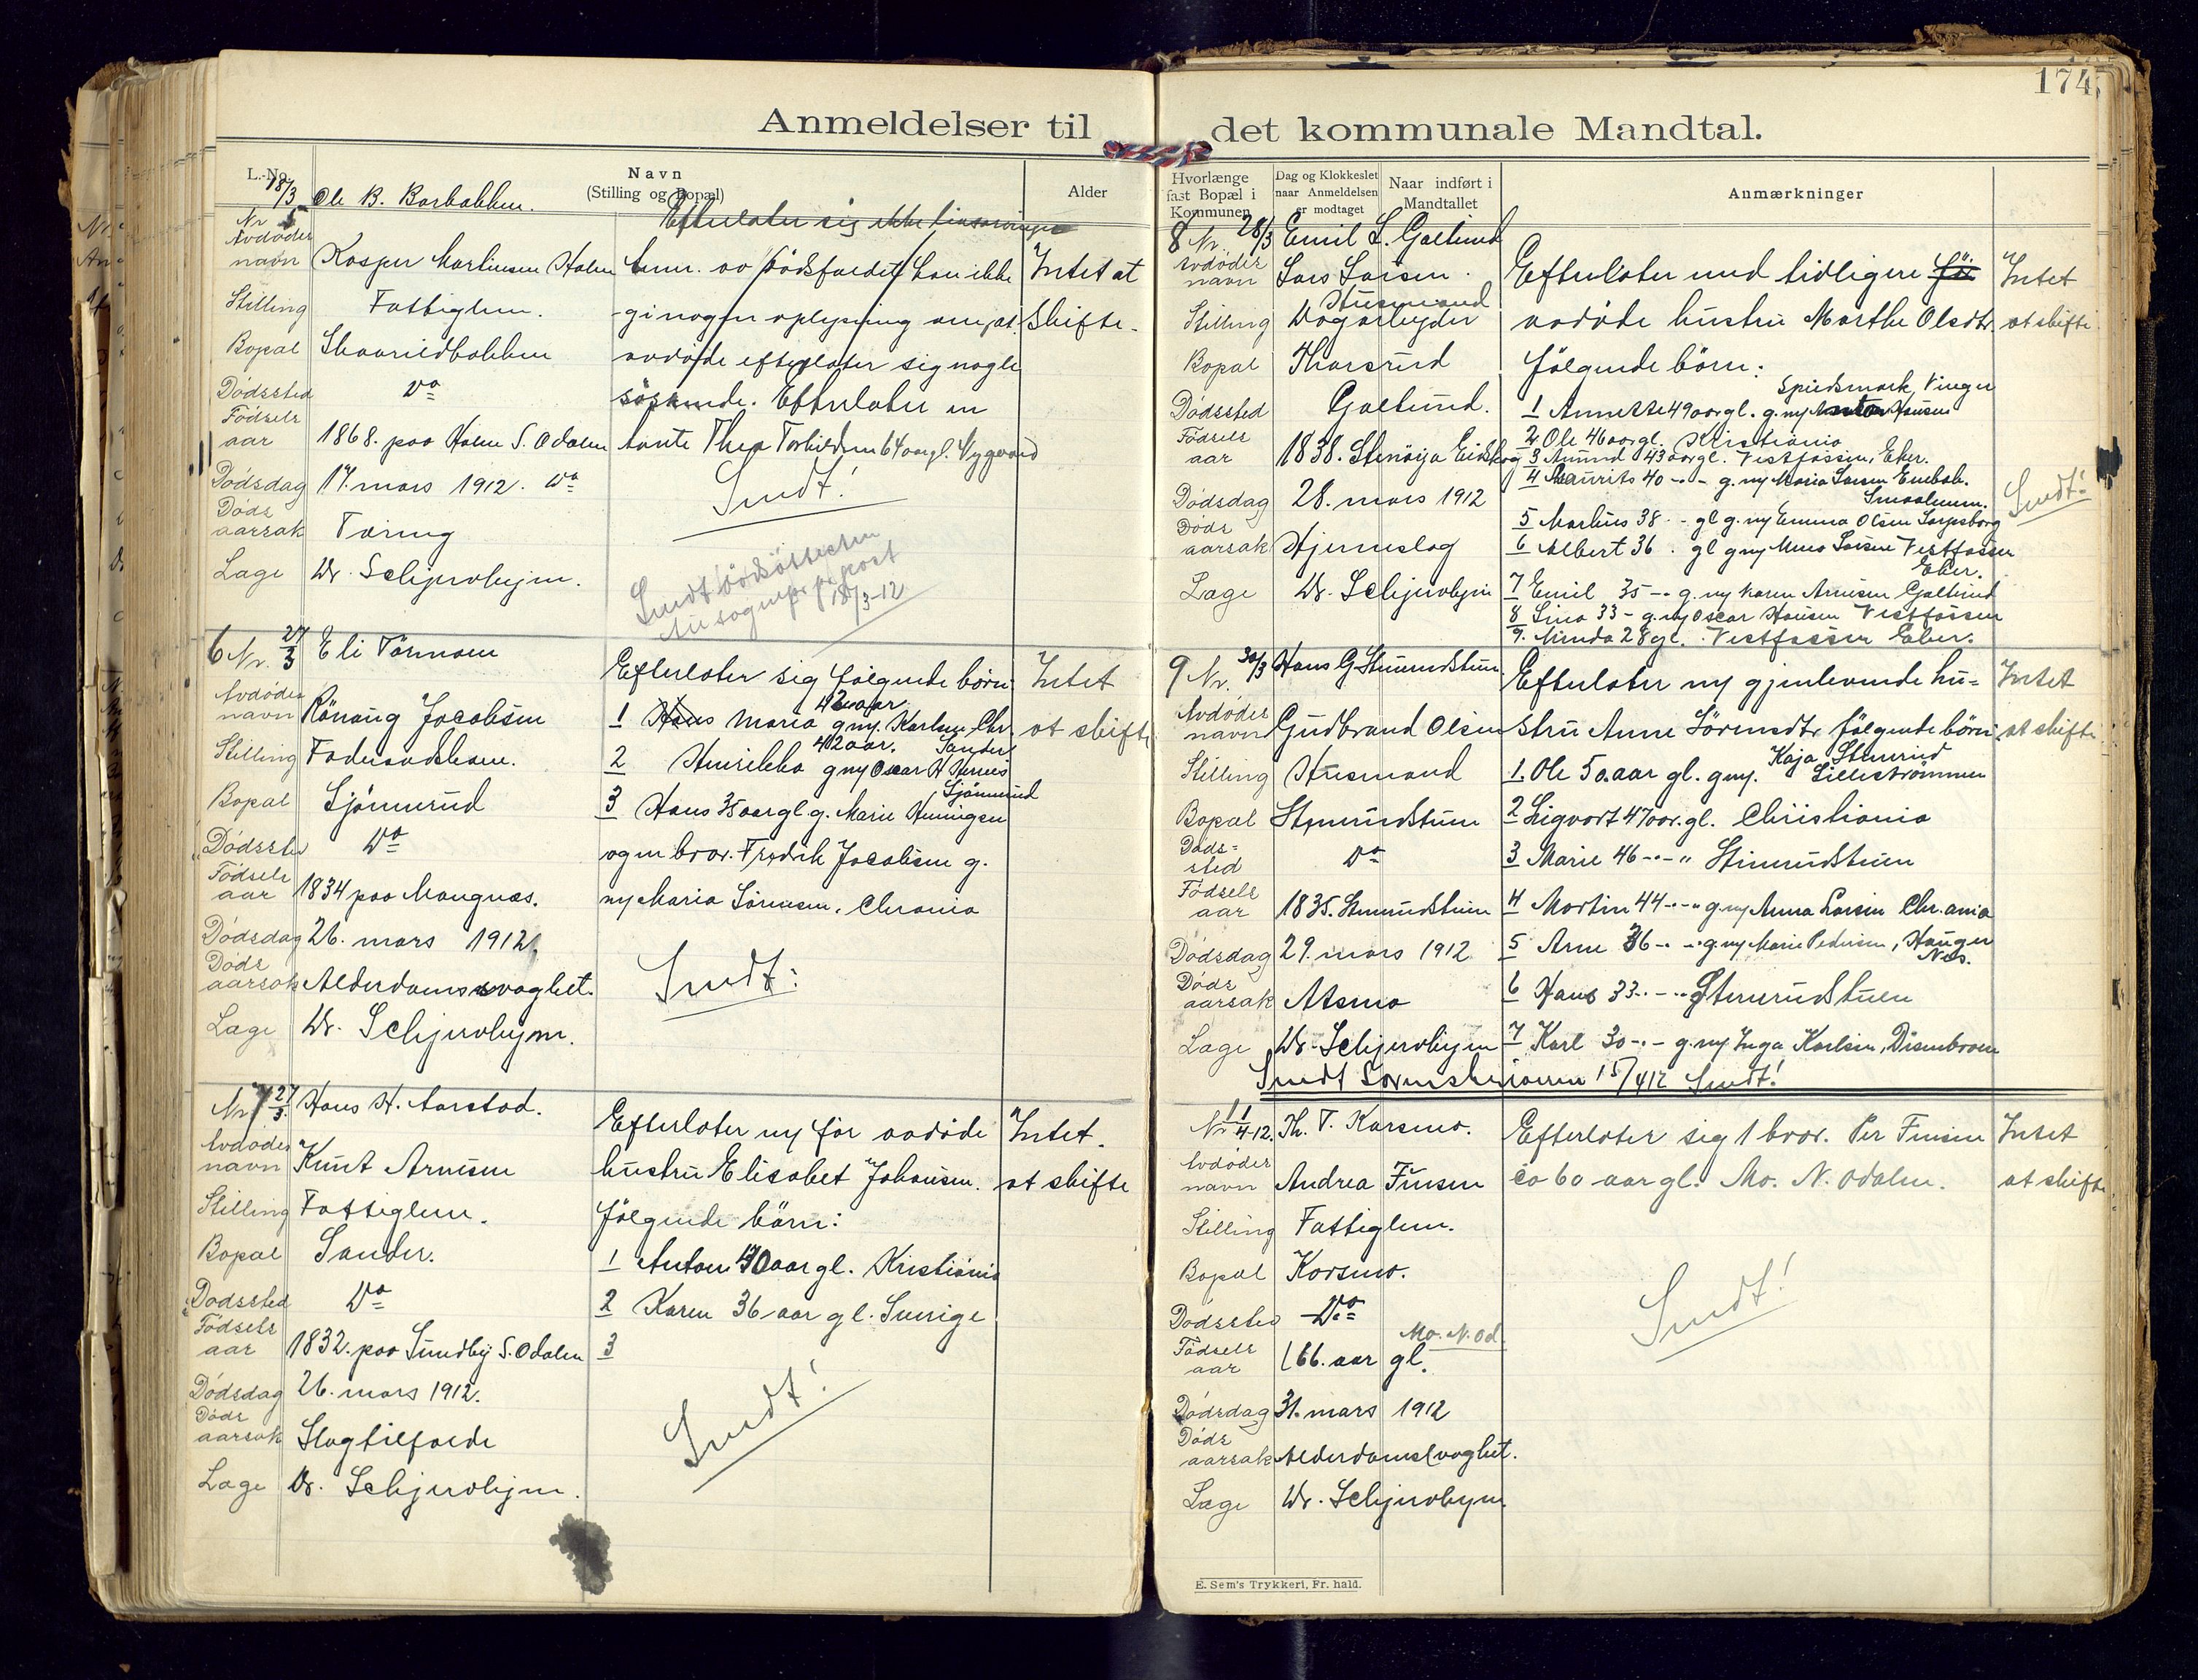 174,
Anmeldelser til det kommunale Mandtal.
L.-No.
Navn
(Stilling og Bopæl)
Alder
Hvorlænge
fast Bopæl i
Kommunen
Dag og Klokkeslet
naar Anmeldelsen
er modtaget
Naar indført i
Mandtallet
Anmærkninger
18/3 Ole B. Barbakken.
Efterlater sig ikke livsarvinger
Nr 5
Avdødes
navn Kasper Martinsen Holm
Anm. av dødsfaldet kan ikke
Intet at
Stilling Fattiglem.
gi nogen oplysning om, at
Skifte.
Bopæl Skaarildbakken
avdøde efterlater sig nogle
Dødssted Do
søskende. Efterlater en
Fødsels
aar 1868. paa Holm S. Odalen
tante Thea Torkildsen 64 aar gl.
Dødsdag 17. mars 1912. Do
Sendt!
Døds
aarsak Tæring
Læge Dr. Schjerverhejm.
Sendt
18/3-12
6 Nr. 27/3 Eli Tørmoen
Efterlater sig følgende børn
Intet
Avdødes
navn Rønaug Jacobsen
42 aar
1 Hans Maria g. m. Karlsen Chr.
at skifte
Stilling Føderaadskone.
42 aar. Sander
2 Henrikka g m Oscar H
Bopæl Sjønnerud
Sjønnerud
3 Hans 35 aar gl g. Marie Heningsen
Dødssted Do
og en bror. Fredrik Jacobsen g.
Fødsels
aar 1834 paa Mangnæs.
m Maria Sørensen. Chrania
Dødsdag 26. mars 1912.
Døds
aarsak Alderdomssvaghet.
Sendt:
Læge Dr. Schjerverhejm.
Nr 7 27/3. Hans H. Aarstad.
Efterlater m før avdøde
Intet.
Avdødes
navn Knut Arnesen
hustru Elisabet Johansen.
at skifte
Stilling Fattiglem.
følgende børn:
Bopæl Sander.
1 Anton 40 aar gl. Kristiania
Dødssted Do
2 Karen 36 aar gl. Sverige
Fødsels
aar 1832. paa Sundby S. Odalen
3
Dødsdag 26. mars 1912.
Døds
aarsak Slagtilfælde
Sendt!
Læge Dr. Schjerverhejm.
8 Nr. 28/3 Emil L. Galtund
Avdødes
navn Lars Larsen.
Efterlater med tidligere
Intet
Husmand
Stilling Dagarbejder
avdøde hustru Marthe Olsdtr.
at skifte
Bopæl Tharsrud
følgende børn:
Dødssted Galtund.
Vinger
1 Annette 49 aar gl. g. m Hansen
Fødsels
aar 1838. Stenøija Eidskog
2 Ole 46 aar gl. Kristiania
3 Amund 43 aar gl. Vestfossen, Eker.
4 Laurits 40 -"- g. m Maria Larsen
Smaalenene.
Dødsdag 28. mars 1912
5 Markus 38 - gl g. m Emma Olsen Sarpsborg
Sendt!
Døds
aarsak Hjerneslag
6 Albert 36 . gl g m Larsen Vestfossen
Eker.
Læge Dr. Schjerverhejm
7 Emil 35 -"- g. m Karen Arnesen Galtund
8 Lina 33 - g. m Oscar Hansen Vestfossen
9. Minda 28 gl. Vestfossen Eker.
9 Nr. 30/3 Hans G. Stenerudstuen
Efterlater m gjenlevende hu=
Intet
Avdødes
navn Gudbrand Olsen
stru Anne Sørensdtr følgende børn
at skifte
Stilling Husmand
Kaja Stenerud
1. Ole 50. aar gl. g m. Lillestrømmen
Bopæl Stenerudstuen
2 Sigvart 47 aar. gl. Christiania
Døds=
sted Do
3 Marie 46 -"- Stenerudstuen
Fødsels
aar 1835. Stenerudstuen
4 Martin 44 -"- g. m Anna Larsen Chr.ania
Dødsdag 29. mars 1912
5 Arne 36 -"- g. m Marie Pedersen, Hauger
Nes.
Døds
aarsak Atsma
6 Hans 33 -"- Stenerudstuen
Læge Dr. Schjerverhejm
7 Karl 30 -"- g. m Inga Karlsen, Disenbroen
Sendt Sorenskriveren 15/4 12 Sendt!
Nr 1 1/4-12. Th. T. Korsmo.
Efterlater sig 1 bror. Per Finsen
Intet
Avdødes
navn Andrea Finsen
ca 60 aar gl. Mo. N. Odalen.
at skifte
Stilling Fattiglem.
Bopæl Korsmo.
Dødssted Do
Sendt!
Mo. N. Od.
Fødsels
aar 66. aar gl.
Dødsdag 31. mars 1912
Døds
aarsak Alderdomssvaghet.
Læge Dr. Schjerverhejm
E. Sem's Trykkeri, Fr. hald.